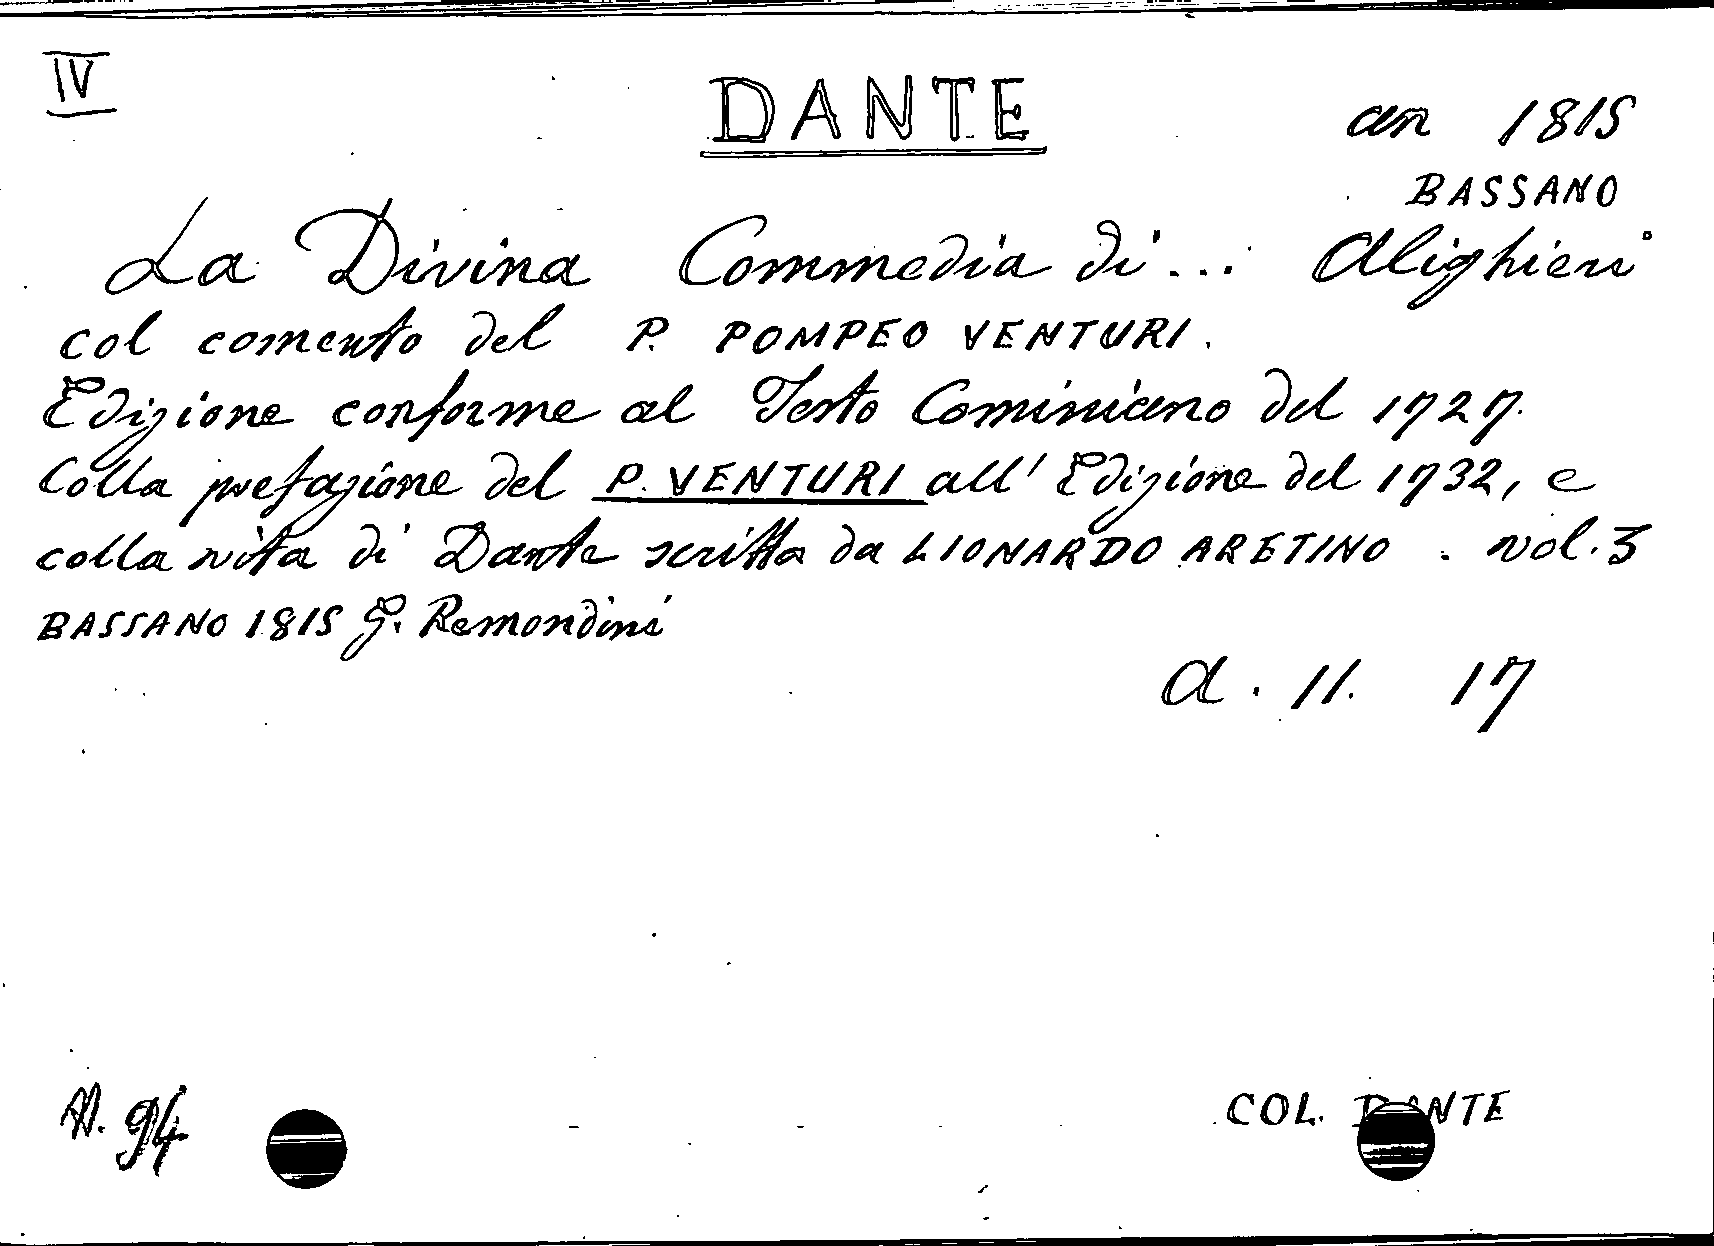 IV
DANTE
an 1815
BASSANO
La Divina Commedia di ... Alighieri
col comento del P. POMPEO VENTURI.
Edizione conforme al Testo Cominiano del 1727.
Colla prefazione del P. VENTURI all' Edizione del 1732, e
colla vita di Dante scritta da LIONARDO ARETINO. vol. 3
BASSANO 1815 G. Remondini
A. 11. 17
N. 94
COL. DANTE